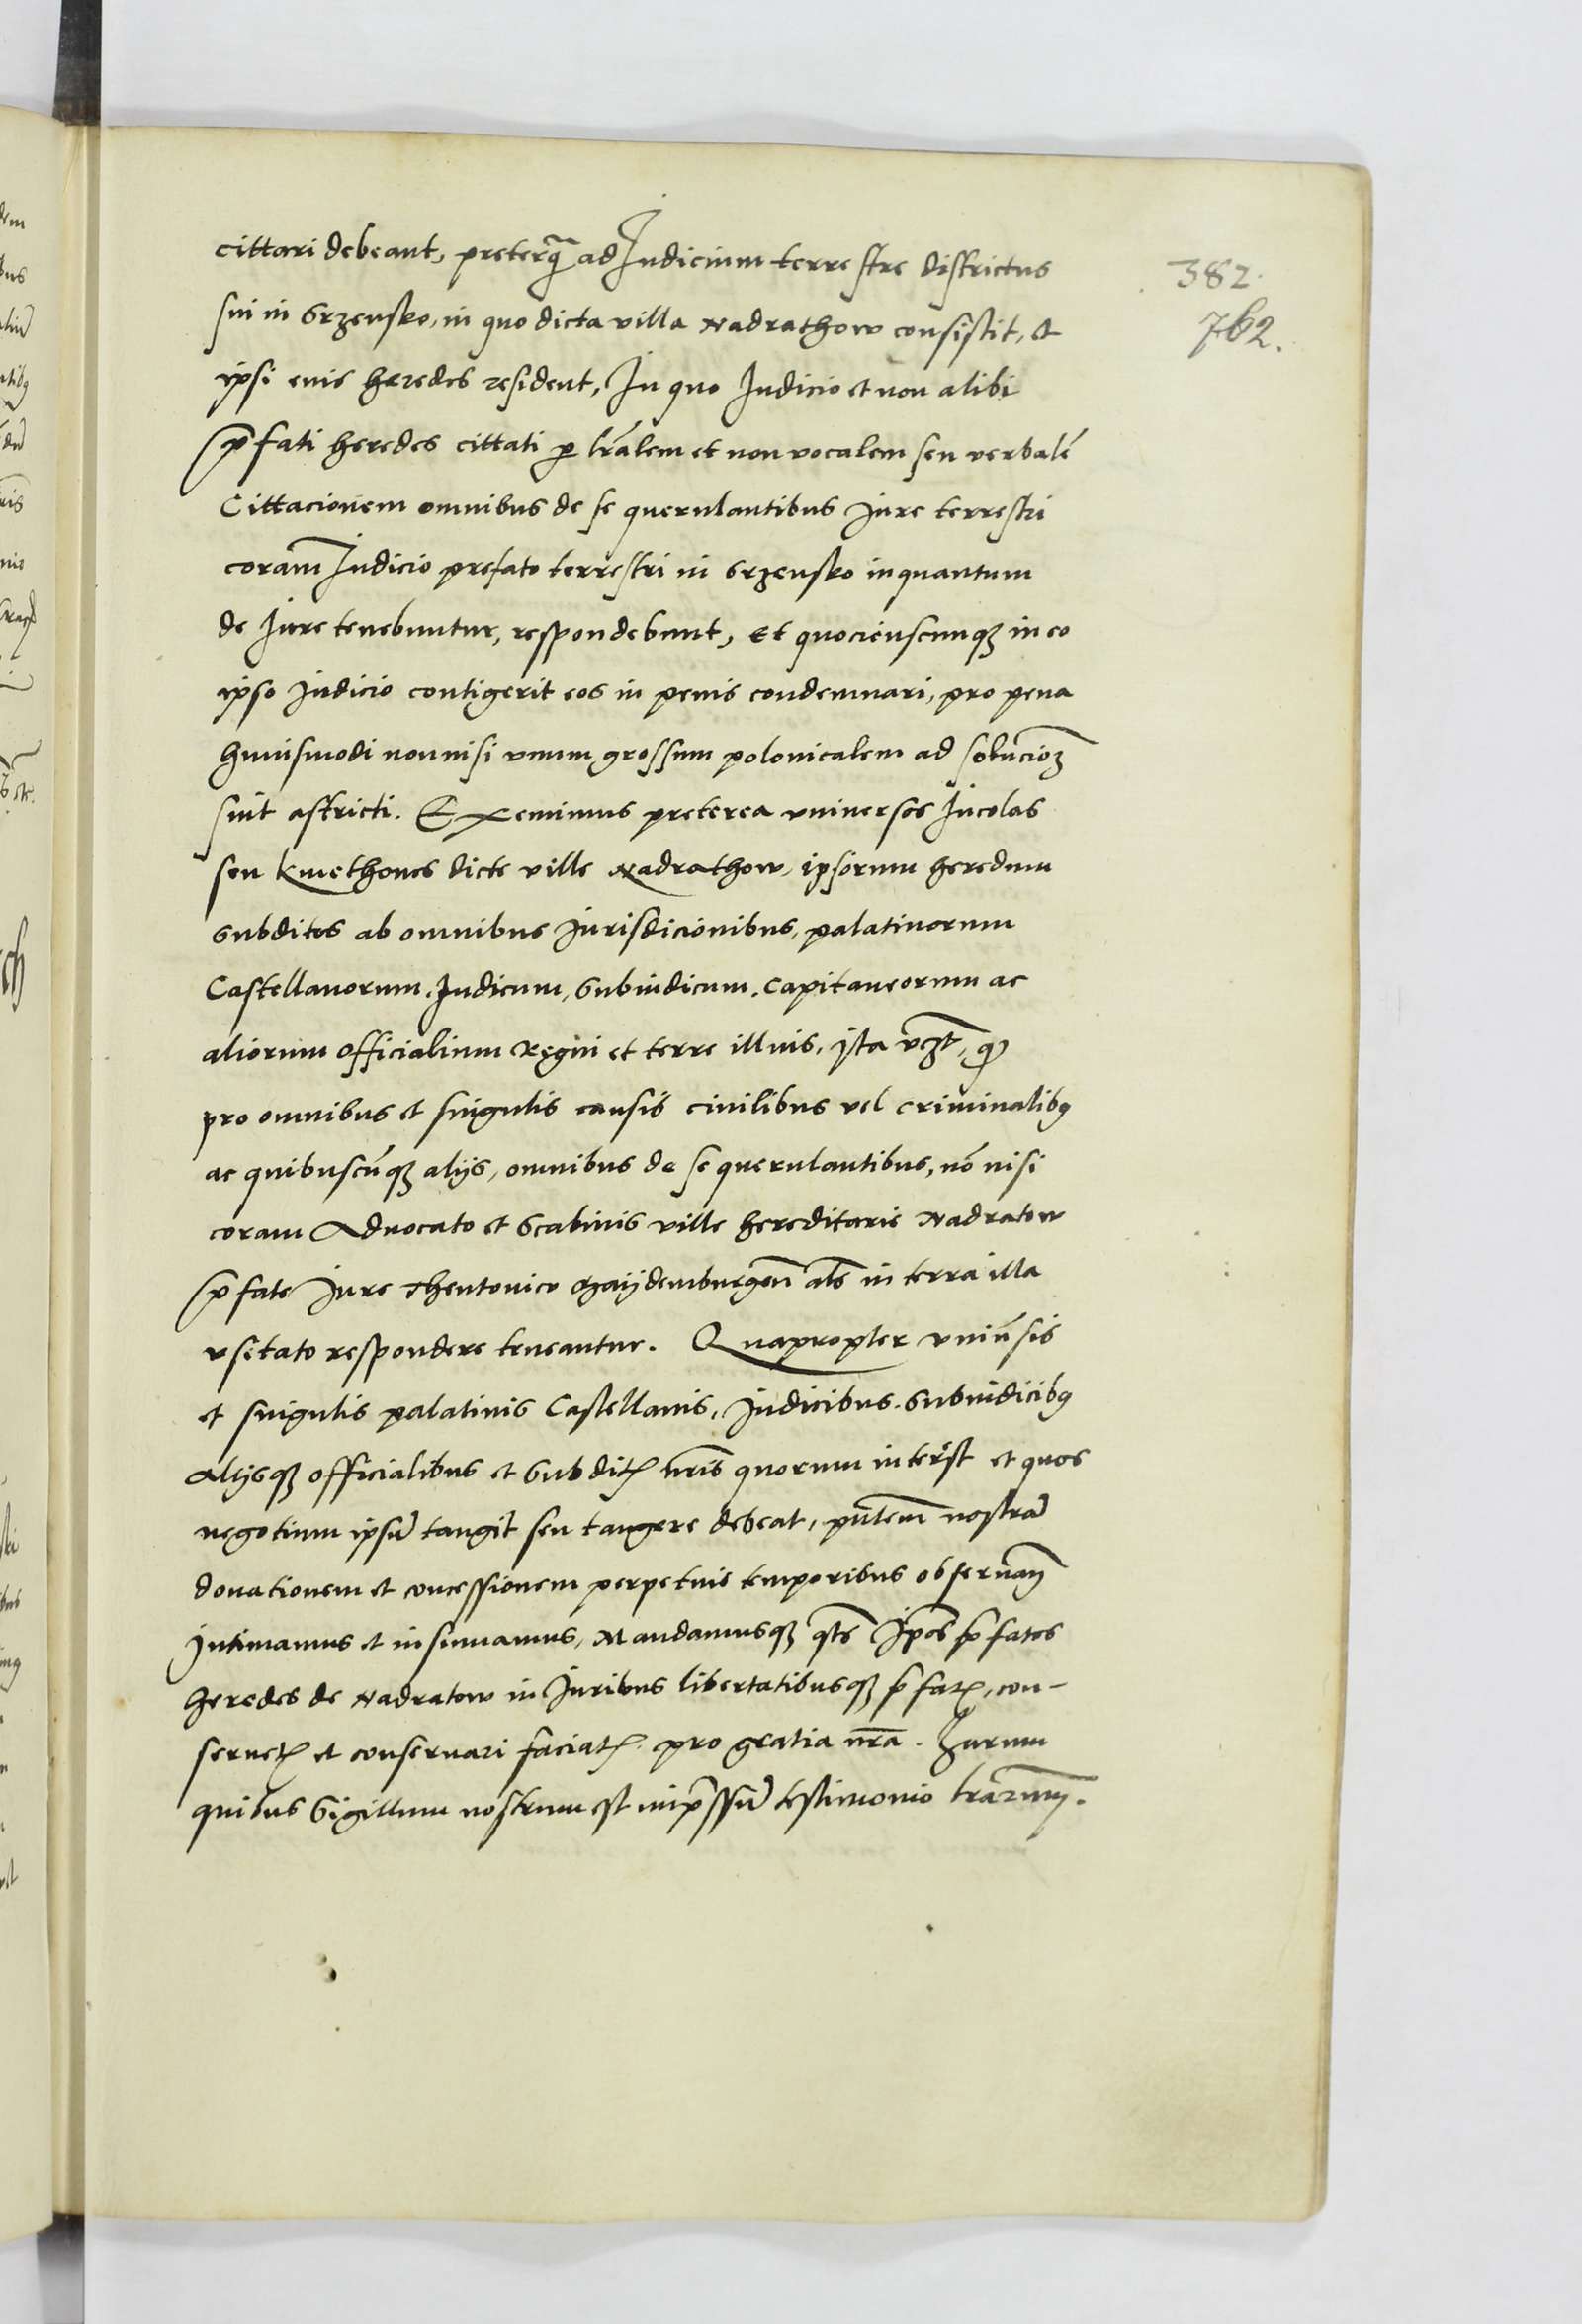 cittari debeant, preterq̃ ad Iudicium terrestre districtus
382.
sui in Srzensko, in quo dicta villa Nadrathow consistit, et
762.
ipsi eius heredes resident, In quo Iudicio et non alibi
p̃fati heredes cittati ꝑ lr̃alem et non vocalem seu verbalẽ
Cittacionem omnibus de se querulantibus Iure terrestri
coram̃ Iudicio prefato terrestri in Srzensko inquantum
de Iure tenebuntur, respondebunt, Et quocienscunqꝫ in eo
ipso Iudicio contigerit eos in penis condemnari, pro pena
huiusmodi nonnisi vnum grossum polonicalem ad solucioꝫ
sint astricti. Eximimus preterea vniversos Incolas
seu kmethones dicte ville Nadrathow, ipsorum heredum
subditos ab omnibus Iurisdicionibus, palatinorum
Castellanorum, Iudicum, Subiudicum, Capitaneorum ac
aliorum officialium Regni et terre illius, Ita vꝫt, qꝫ
pro omnibus et singulis causis civilibus vel criminalibꝯ
ac quibuscũqꝫ alijs, omnibus de se querulantibus, nõ nisi
coram Advocato et Scabinis ville hereditarie Nadratow
p̃fate Iure Theutonico Maijdemburgen̄ als̄ in terra illa
vsitato respondere teneantur. Quapropter vniũsis
et singulis palatinis Castellanis, Iudicibus, Subiudicibꝯ
Alijsqꝫ officialibus et Subditꝭ nr̃is quorum interest et quos
negotium ipsũ tangit seu tangere debeat, pñtem nostrã
donationem et concessionem perpetuis temporibus observan̄
Intimamus et insinuamus, Mandamusqꝫ qts̄ Ipos̄ p̃fatos
heredes de Nadratow in Iuribus libertatibusqꝫ p̃fatꝭ, con-
servetꝭ et conservari faciatꝭ pro gratia nr̃a. Harum
quibus Sigillum nostrum est imp̃ssũ testimonio lr̃arum.